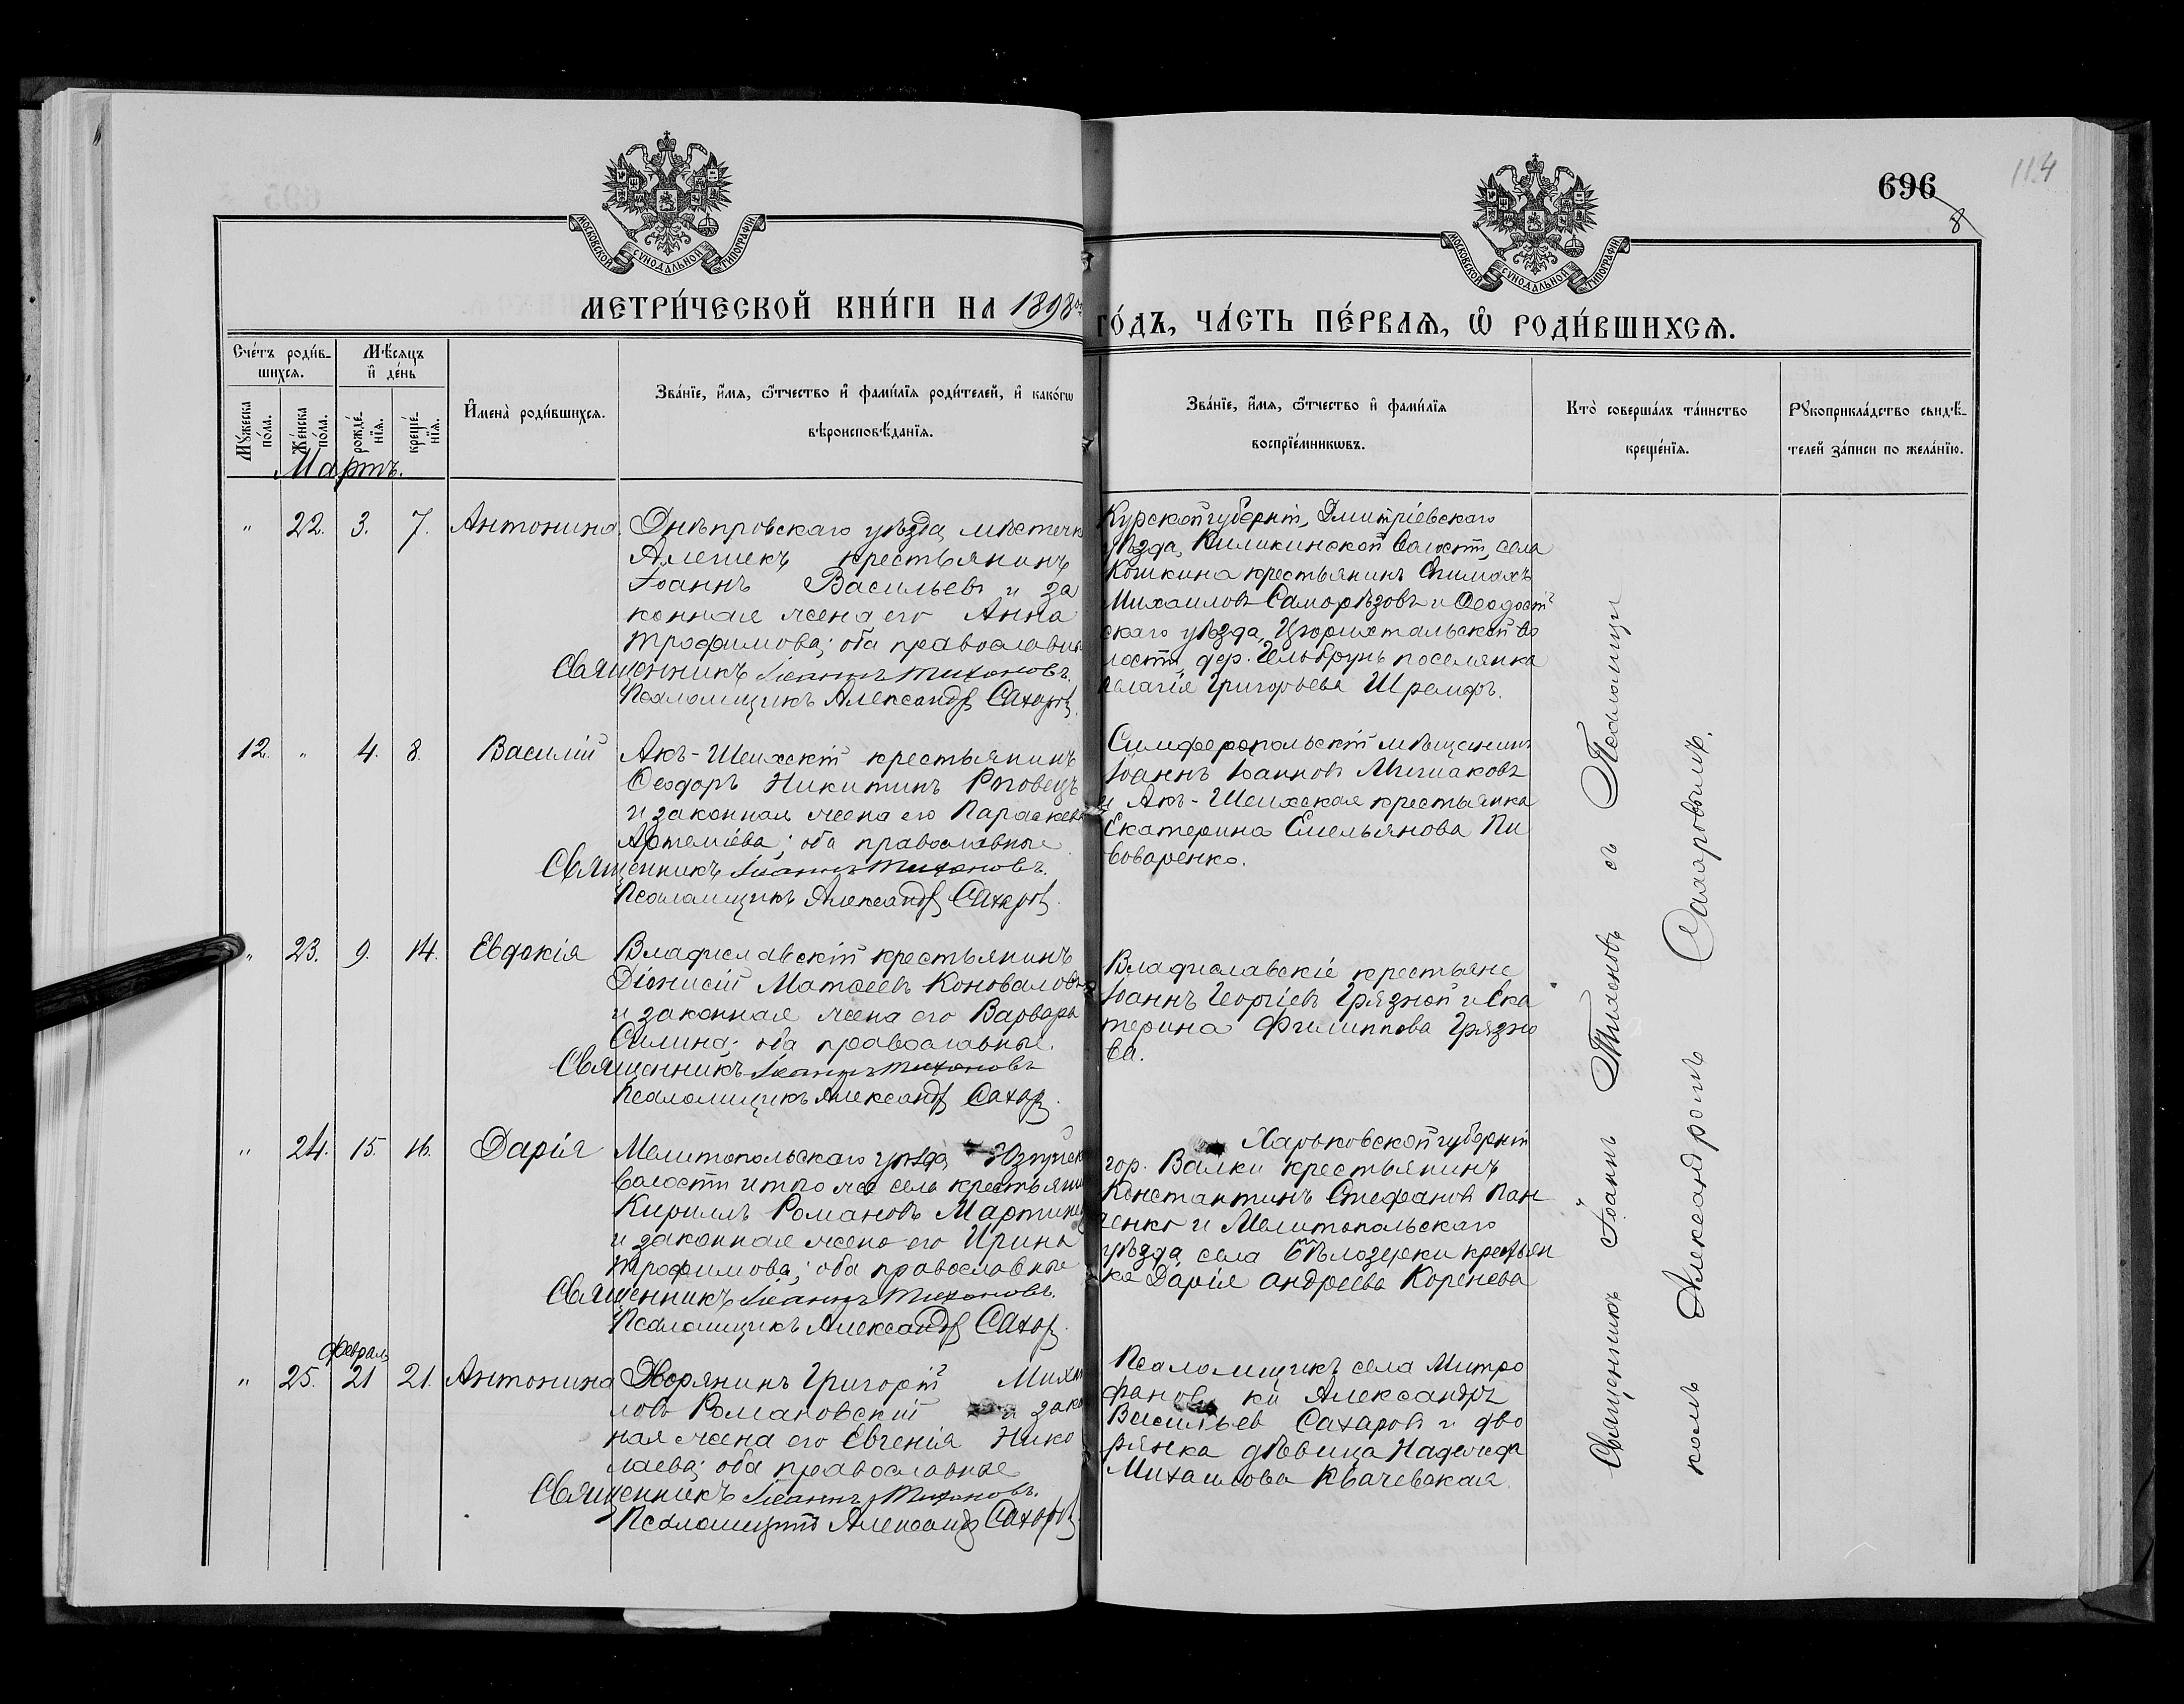 696
8
114
МОСКОВСКОЙ СѴНОДАЛЬНОЙ ТИПОГРАФІИ
МОСКОВСКОЙ СѴНОДАЛЬНОЙ ТИПОГРАФІИ
МЕТРИ́ЧЕСКОЙ КНИ́ГИ НА 1898й
ГО́ДЪ, ЧА́СТЬ ПЕ́РВАѦ, Ѽ РОДИ́ВШИХСѦ.
Сче́тъ роди́в-
шихсѧ.
Мѣ́сѧцъ
и҆ де́нь
Мꙋ́жеска по́ла.
Же́нска по́ла.
рожде́-
нїѧ.
креще́-
нїѧ.
И҆мена̀ роди́вшихсѧ.
Зва́нїе, и҆́мѧ, ѻ҆́тчество и҆ фами́лїѧ роди́телей, и҆ како́гѡ
вѣроисповѣ́данїѧ.
Зва́нїе, и҆́мѧ, ѻ҆́тчество и҆ фами́лїѧ
воспрїе́мникѡвъ.
Кто̀ соверша́лъ та́инство
креще́нїѧ.
Рꙋкоприкла́дство свидѣ́-
телей за́писи по жела́нїю.
Мартъ.
" 22. 3. 7. Антонина
Днѣпровскаго уѣзда, мѣстечк
Алешекъ крестьянинъ
Іоаннъ Васильевъ и за
конная жена его Анна
Трофимова; оба православны
Священникъ Іоаннъ Тихоновъ.
Псаломщикъ Александръ Сахаровъ.
Курской губерніи, Дмитріевскаго
уѣзда, Киликинской волости, села
Кошкина крестьянинъ
Михаиловъ Саморѣзовъ и Ѳеодосій
скаго уѣзда, Цюрихтальской во
лости, дер. Гельбрунъ поселянка
Пелагія Григорьева Шремфъ.
12. " 4. 8. Василій
Акъ-Шеихскій крестьянинъ
Ѳеодоръ Никитинъ Роговецъ
и законная жена его Параскева
Артеміева; оба православные
Священникъ Іоаннъ Тихоновъ.
Псаломщикъ Александръ Сахаровъ.
Симферопольскій мѣщанинъ
Іоаннъ Іоанновъ Мишаковъ
и Акъ-Шеихская крестьянка
Екатерина Емельянова Пи
воваренко.
" 23. 9. 14. Евдокія
Владиславскій крестьянинъ
Діонисій Матѳеевъ Коноваловъ
и законная жена его Варвара
Силина; оба православные.
Священникъ Іоаннъ Тихоновъ
Псаломщикъ Александръ Сахаровъ.
Владиславскіе крестьяне
Іоаннъ Георгіевъ Грязной и Ека
терина Филиппова Грязно
ва.
" 24. 15. 16. Дарія
Мелитопольскаго уѣзда,
волости и того же села крестьянин
Кириллъ Романовъ Мартинен
и законная жена его Ирина
Трофимова; оба православные
Священникъ Іоаннъ Тихоновъ.
Псаломщикъ Александръ Сахаровъ.
Харьковской губерніи
гор. Валки крестьянинъ
Константинъ Стефановъ Пан
ченко и Мелитопольскаго
уѣзда села Бѣлозерки крестьян
ка Дарія Андреева Коренева
Февраль
" 25. 21 21. Антонина
Дворянинъ Григорій Михаи
ловъ Романовскій и закон
ная жена его Евгенія Нико
лаева; оба православные
Священникъ Іоаннъ Тихоновъ.
Псаломщикъ Александръ Сахаровъ
Псаломщикъ села Митро
фановки Александръ
Васильевъ Сахаровъ и дво
рянка дѣвица Надежда
Михаилова Квачевская.
Священникъ Іоаннъ Тихоновъ съ Псаломщи
комъ Александромъ Сахаровымъ.